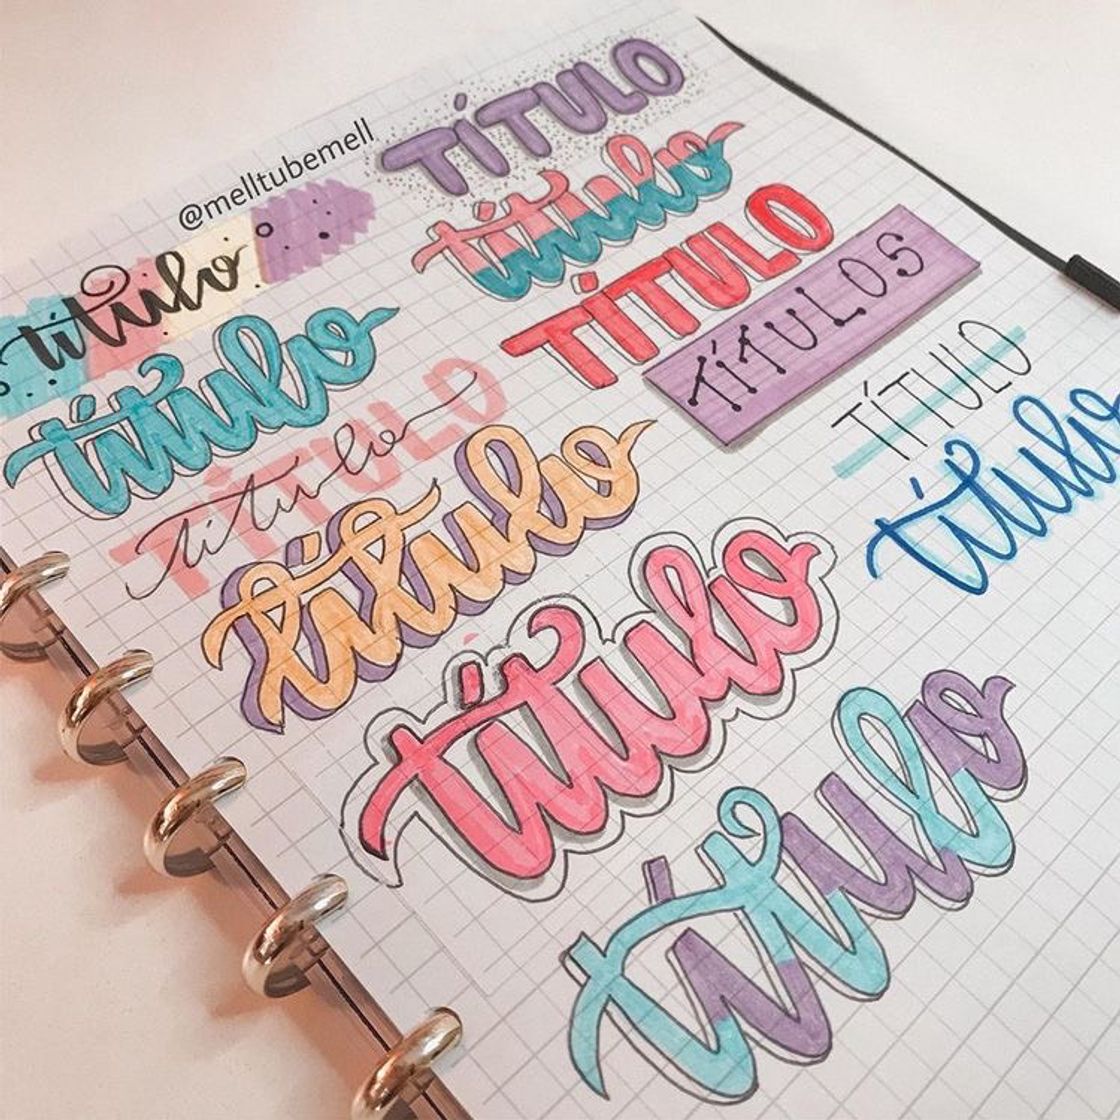 @melltubemell
TÍTULO
título
título
TÍTULO
TÍTULOS
título
TÍTULO
título
TÍTULO
título
título
título
título